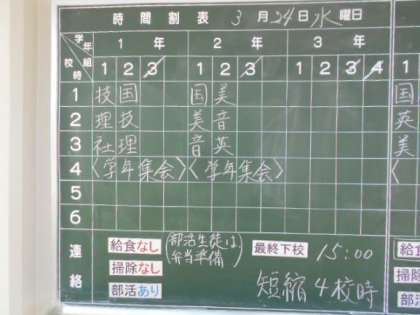 時間割表 3月24日水曜日
学年 組 校時 1年 2年 3年
1 2 3 1 2 3 1 2 3 4
1 技 国 国 美 国
2 理 技 美 音 英
3 社 理 音 英 美
4 〈学年集会〉〈学年集会〉
5
6
連絡
給食なし (部活生徒は 弁当準備) 最終下校 15:00
掃除なし
部活あり 短縮4校時
給食
掃除
部活